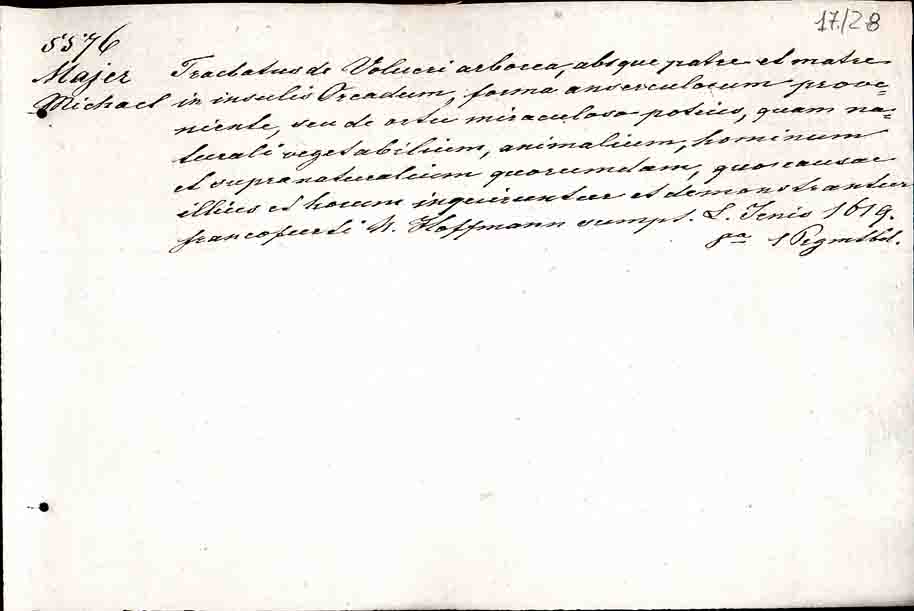 17/28
5576
Majer Tractatus de Volucri arborea, absque patre et matre
Michael in insulis Orcadum, forma anserculorum prove=
niente, seu de ortu miraculoso potius, quam na=
turali vegetabilium, animalium, hominum
et supranaturalium quorumdam, quo causae
illius et horum inquiruntur et demonstrantur
francofurti N. Hoffmann sumpt. L. Jenis 1619.
8a 1 Pgmtbd.